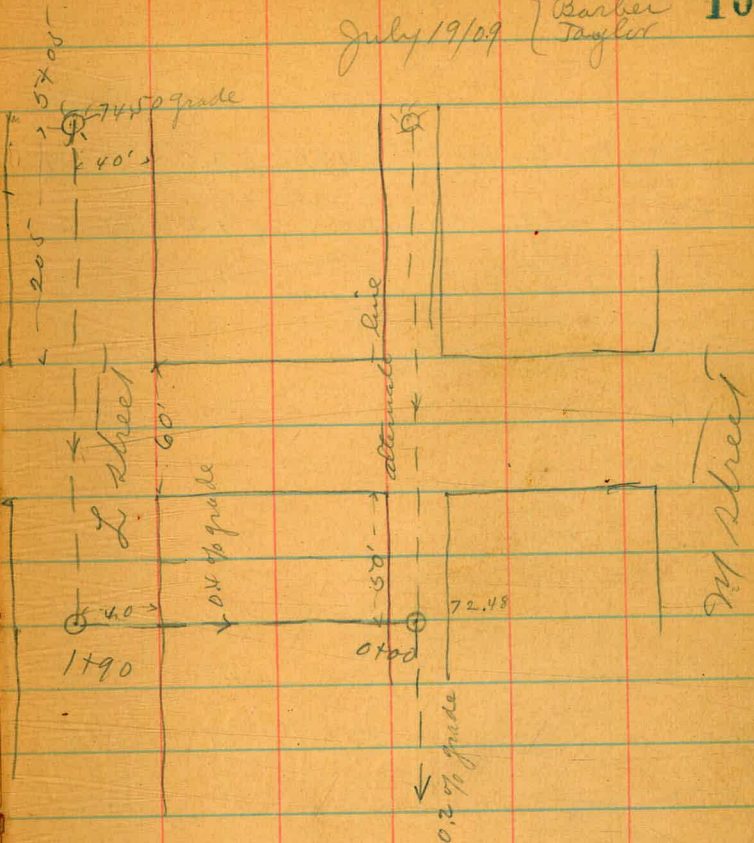 July 19/09
Barber
Taylor
10
5+05
74.50 grade
40'
205
L street
60'
alternate line
M street
0.4 % grade
50'
40
72.48
1+90
0+00
0.2 % grade